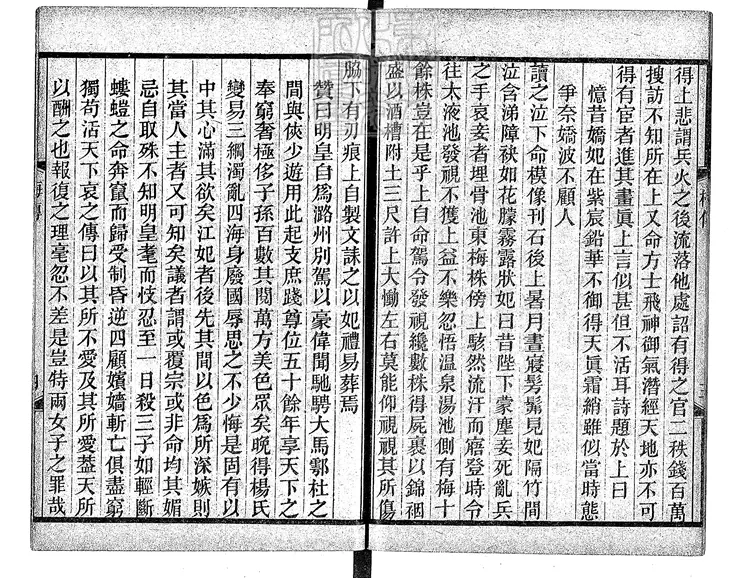 得上悲謂兵火之後流落他處詔有得之官二秩錢百萬
搜訪不知所在上又命方士飛神御氣潛經天地亦不可
得有宦者進其畫眞上言似甚但不活耳詩題於上曰
憶昔嬌妃在紫宸鉛華不御得天眞霜綃雖似當時態
爭奈嬌波不顧人
讀之泣下命模像刊石後上暑月晝寢髣髴見妃隔竹間
泣含涕障袂如花朦霧露狀妃曰昔陛下蒙塵妾死亂兵
之手哀妾者埋骨池東梅株傍上駭然流汗而寤登時令
往太液池發視不獲上益不樂忽悟溫泉湯池側有梅十
餘株豈在是乎上自命駕令發視纔數株得屍裹以錦裀
盛以酒槽附土三尺許上大慟左右莫能仰視視其所傷
脇下有刃痕上自製文誄之以妃禮易葬焉
贊曰明皇自爲潞州別駕以豪偉聞馳騁犬馬鄠杜之
間與俠少遊用此起支庶踐尊位五十餘年享天下之
奉窮奢極侈子孫百數其閱萬方美色眾矣晚得楊氏
變易三綱濁亂四海身廢國辱思之不少悔是固有以
中其心滿其欲矣江妃者後先其間以色爲所深嫉則
其當人主者又可知矣議者謂或覆宗或非命均其媚
忌自取殊不知明皇耄而忮忍至一日殺三子如輕斷
螻螘之命奔竄而歸受制昏逆四顧嬪嬙斬亡俱盡窮
獨苟活天下哀之傳曰以其所不愛及其所愛葢天所
以酬之也報復之理毫忽不差是豈特兩女子之罪哉